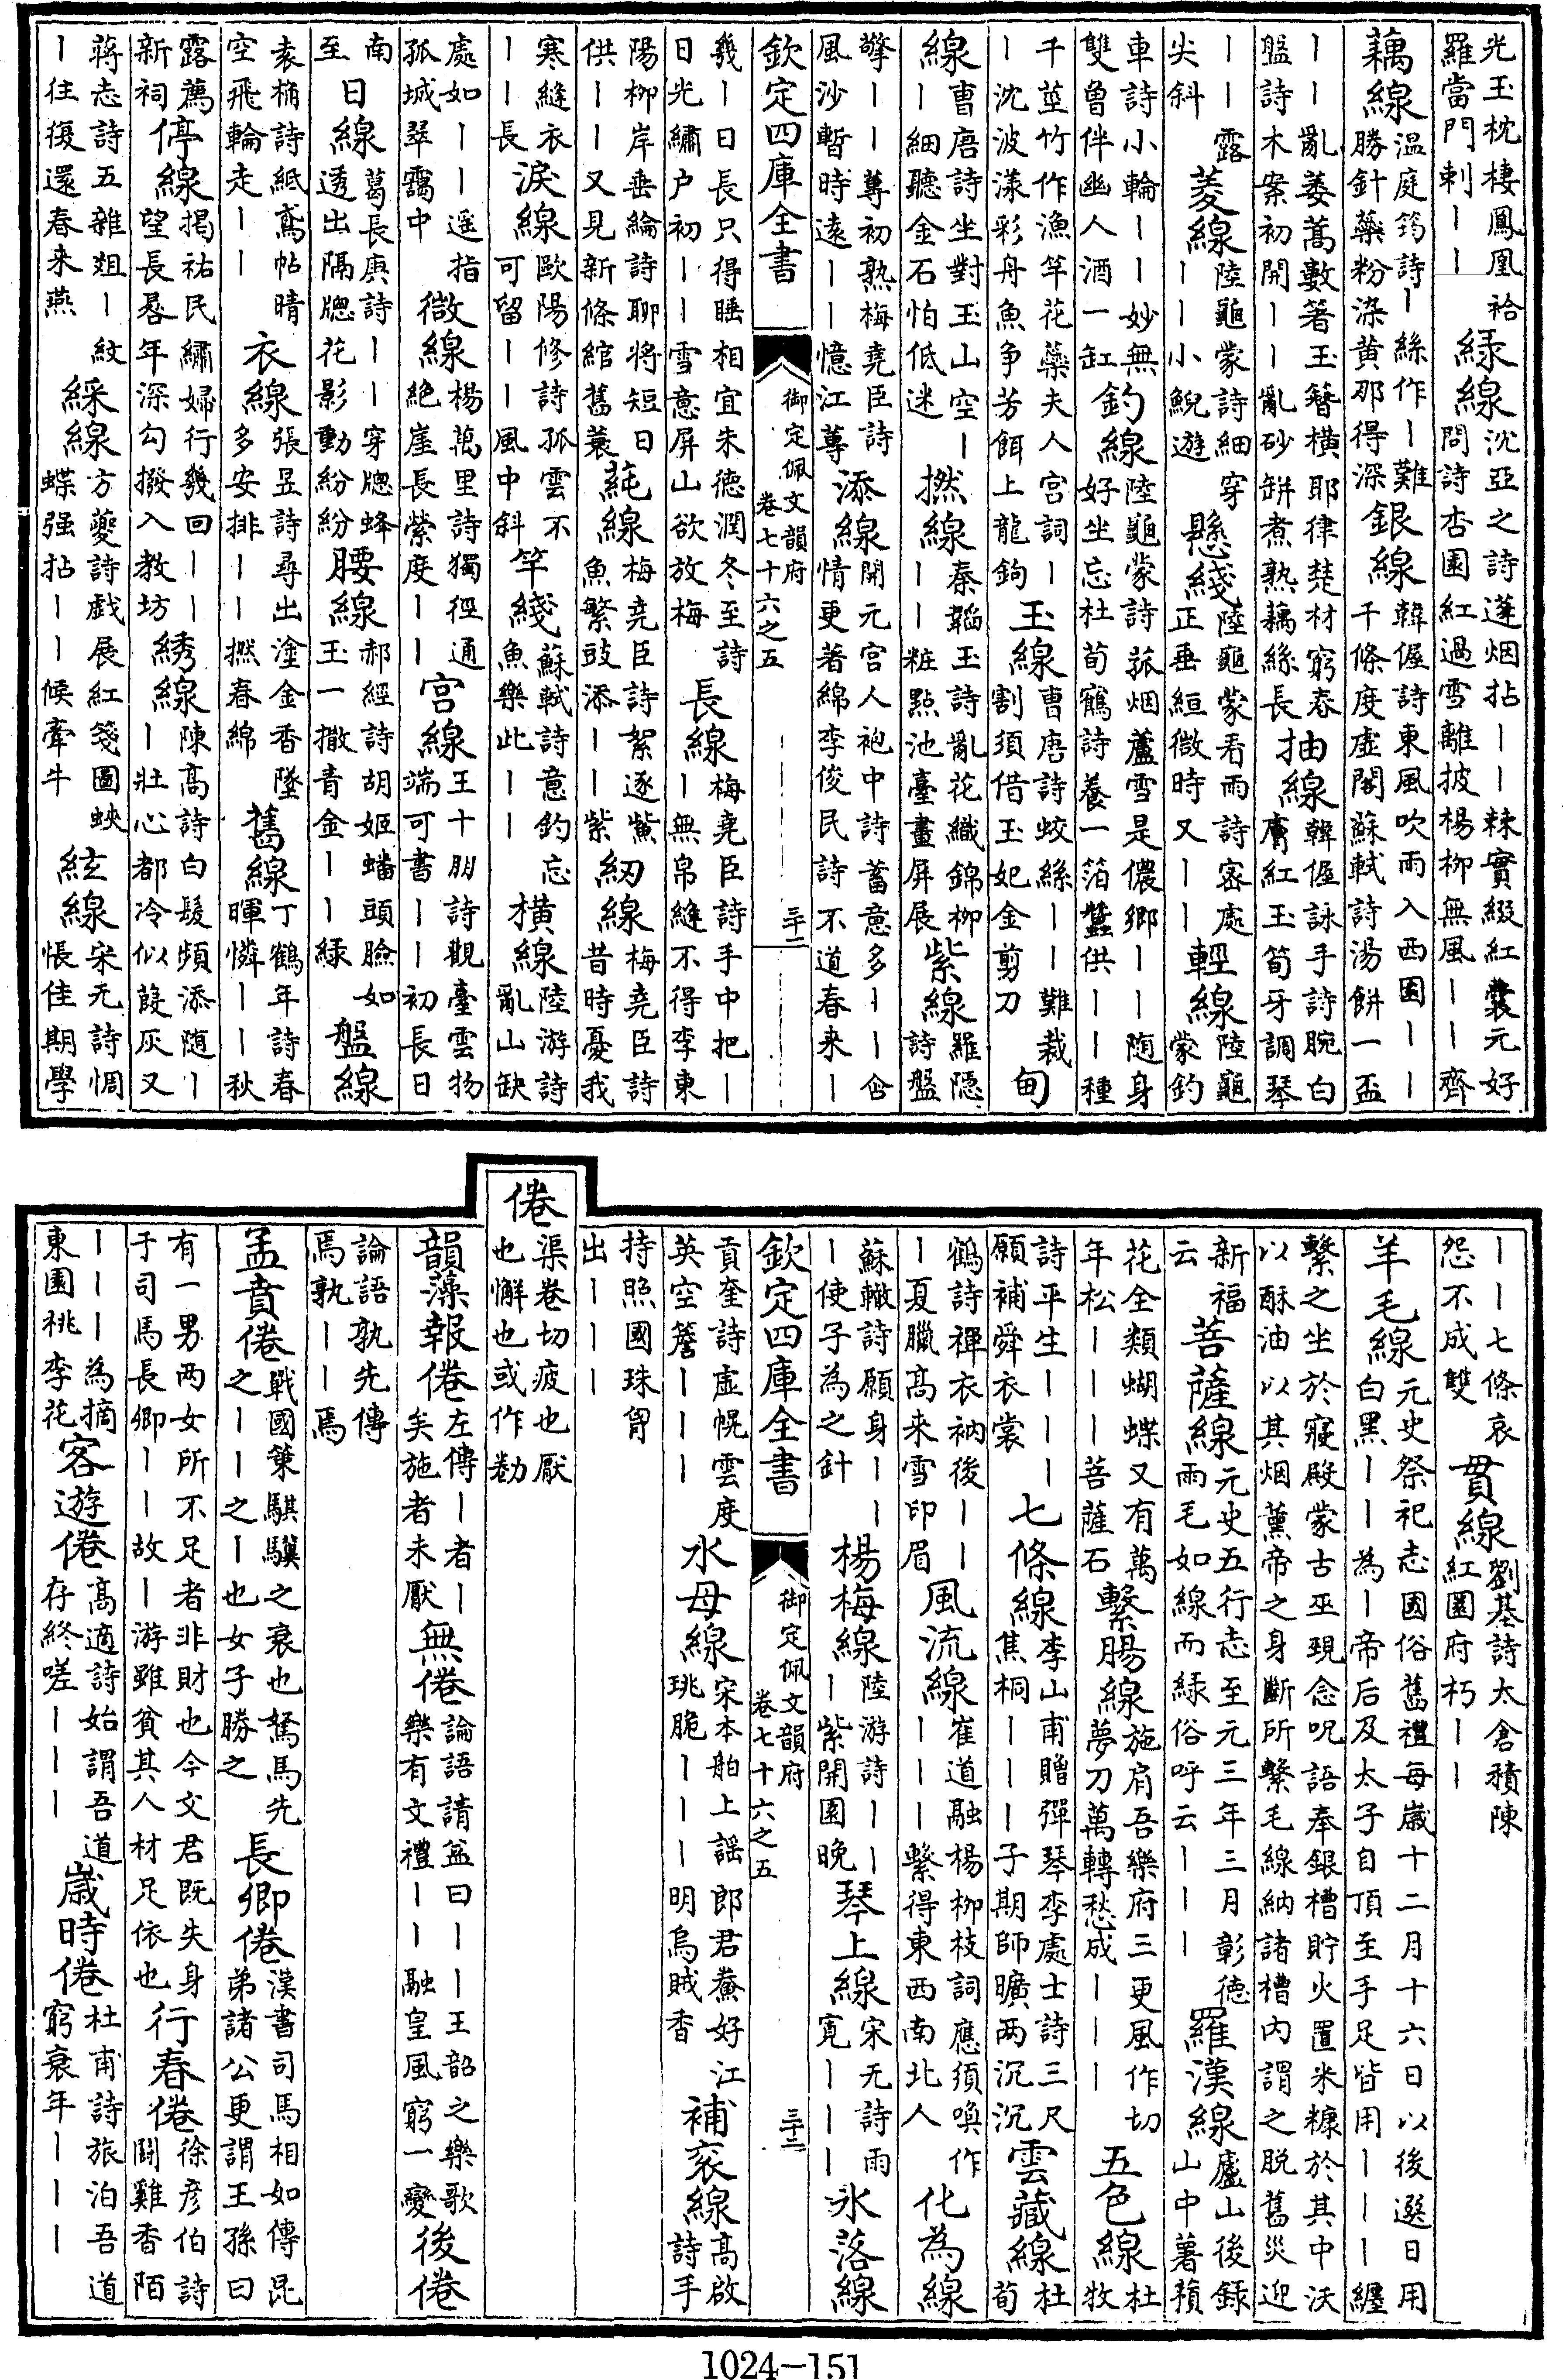 光玉枕棲鳳凰袷羅當門刺丨丨緑線沈亞之詩蓬烟拈丨丨棘實綴紅囊元好問詩杏園紅過雪離披楊柳無風丨丨齊
藕線温庭筠詩丨絲作丨難勝針藥粉染黄那得深銀線韓偓詩東風吹雨入西園丨丨千條度虚閣蘇軾詩湯餅一盃
丨丨亂蔞蒿數箸玉簪横耶律楚材窮春盤詩木案初開丨丨亂砂缾煮熟藕絲長抽線韓偓詠手詩腕白膚紅玉筍牙調琴
丨丨露尖斜菱線陸龜蒙詩細穿丨丨小鯢遊懸綫陸龜蒙看雨詩密處正垂絙微時又丨丨輕線陸龜蒙釣
車詩小輪丨丨妙無雙曾伴幽人酒一缸釣線陸龜蒙詩菰烟蘆雪是儂鄉丨丨随身好坐忘杜荀鶴詩養一箔蠶供丨丨種
千莖竹作漁竿花蘂夫人宫詞丨丨沈波漾彩舟魚争芳餌上龍鉤玉線曹唐詩蛟絲丨丨難裁割須借玉妃金剪刀甸
線曹唐詩坐對玉山空丨丨細聽金石怕低迷撚線秦韜玉詩亂花織錦柳丨丨粧點池臺畫屏展紫線羅隱詩盤
擎丨丨蓴初熟梅堯臣詩風沙暫時遠丨丨憶江蓴添線開元宫人袍中詩蓄意多丨丨含情更著綿李俊民詩不道春来丨
欽定四庫全書 御定佩文韻府 卷七十六之五 三十一
幾丨日長只得睡相宜朱德潤冬至詩日光繡户初丨丨雪意屏山欲放梅長線梅堯臣詩手中把丨丨無帛縫不得李東
陽柳岸垂綸詩聊将短日供丨丨又見新條綰舊蓑蒓線梅堯臣詩絮逐鮆魚繁豉添丨丨紫紉線梅堯臣詩昔時憂我
寒縫衣丨丨長淚線歐陽修詩孤雲不可留丨丨風中斜竿綫蘇軾詩意釣忘魚樂此丨丨横線陸游詩亂山缺
處如丨丨遥指孤城翠靄中微線楊萬里詩獨徑通絶崖長縈度丨丨宫線王十朋詩觀臺雲物端可書丨丨初長日
南至日線葛長庚詩丨丨穿牕蜂透出隔牕花影動紛紛腰線郝經詩胡姬蟠頭臉如玉一撒青金丨丨緑盤線
袁桷詩紙鳶帖晴空飛輪走丨丨衣線張昱詩尋出塗金香墜多安排丨丨撚春綿舊線丁鶴年詩春暉憐丨丨秋
露薦新祠停線揭祐民繡婦行幾回丨丨望長晷年深勾撥入教坊綉線陳高詩白髮頻添随丨丨壯心都冷似葭灰又
蔣志詩五雜爼丨紋丨往復還春来燕綵線方夔詩戯展紅箋圖蛺蝶强拈丨丨候牽牛絃線宋无詩惆悵佳期學
丨丨七條哀怨不成雙貫線劉基詩太倉積陳紅園府朽丨丨
羊毛線元史祭祀志國俗舊禮每歲十二月十六日以後選日用白黑丨丨為丨帝后及太子自頂至手足皆用丨丨丨纏
繫之坐於寢殿蒙古巫覡念呪語奉銀槽貯火置米糠於其中沃以酥油以其烟薰帝之身斷所繫毛線納諸槽内謂之脱舊災迎
新福云菩薩線元史五行志至元三年三月彰德雨毛如線而緑俗呼云丨丨丨羅漢線廬山後錄山中薯蕷
花全類蝴蝶又有萬年松丨丨丨菩薩石繫腸線施肩吾樂府三更風作切夢刀萬轉愁成丨丨丨五色線杜牧
詩平生丨丨丨願補舜衣裳七條線李山甫贈彈琴李處士詩三尺焦桐丨丨丨子期師曠两沉沉雲藏線杜荀
鶴詩禪衣衲後丨丨丨夏臘高来雪印眉風流線崔道融楊柳枝詞應須喚作丨丨丨繫得東西南北人化為線
蘇轍詩願身丨丨丨使子為之針楊梅線陸游詩丨丨丨紫開園晚琴上線宋无詩雨寛丨丨丨氷落線
欽定四庫全書 御定佩文韻府 卷七十六之五 三十二
貢奎詩虚幌雲度英空簷丨丨丨水母線宋本舶上謡郎君鯗好江珧脆丨丨丨明烏賊香補衮線高啟詩手
持照國珠胷出丨丨丨
倦渠卷切疲也厭也懈也或作勌
韻藻報倦左傳丨者丨矣施者未厭無倦論語請益曰丨丨王韶之樂歌樂有文禮丨丨融皇風窮一變後倦
論語孰先傳焉孰丨丨焉
孟賁倦戰國䇿騏驥之衰也駑馬先之丨丨之丨也女子勝之長卿倦漢書司馬相如傳昆弟諸公更謂王孫曰
有一男两女所不足者非財也今文君既失身于司馬長卿丨丨故丨游雖貧其人材足依也行春倦徐彦伯詩鬭雞香陌
丨丨丨為摘東園桃李花客遊倦高適詩始謂吾道存終嗟丨丨丨歲時倦杜甫詩旅泊吾道窮衰年丨丨丨
1024—151